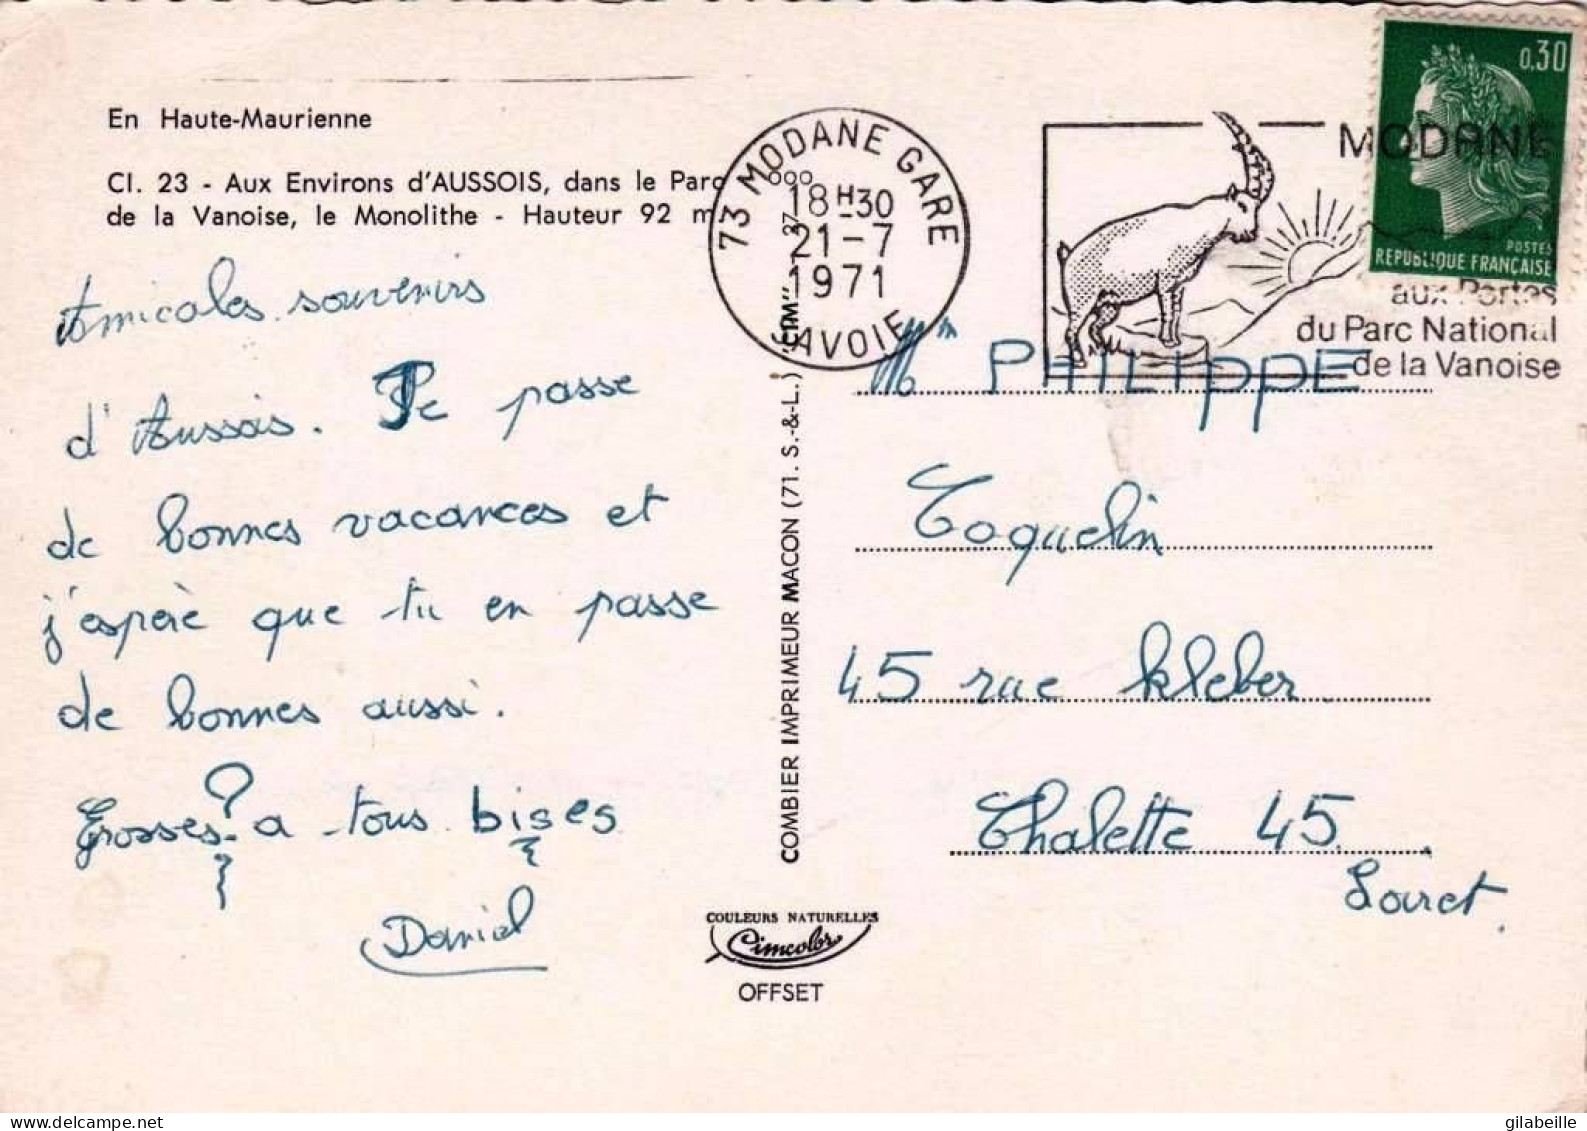 En Haute-Maurienne
CI. 23 - Aux Environs d'AUSSOIS, dans le Parc
de la Vanoise, le Monolithe - Hauteur 92 m
Amicales souvenirs
d'Aussois. Je passe
de bonnes vacances et
j'espère que tu en passe
de bonnes aussi.
Grosses ? a tous bises
Daniel
73 MODANE GARE
18H30
21-7
1971
SAVOIE
MODANE
aux Portes
du Parc National
de la Vanoise
0,30
POSTES
REPUBLIQUE FRANÇAISE
COMBIER IMPRIMEUR MACON (71. S.-&-L.)
COULEURS NATURELLES
Cimcolor
OFFSET
Mr PHILIPPE
Coquelin
45 rue Kleber
Chalette 45
Loiret.
gilabeille